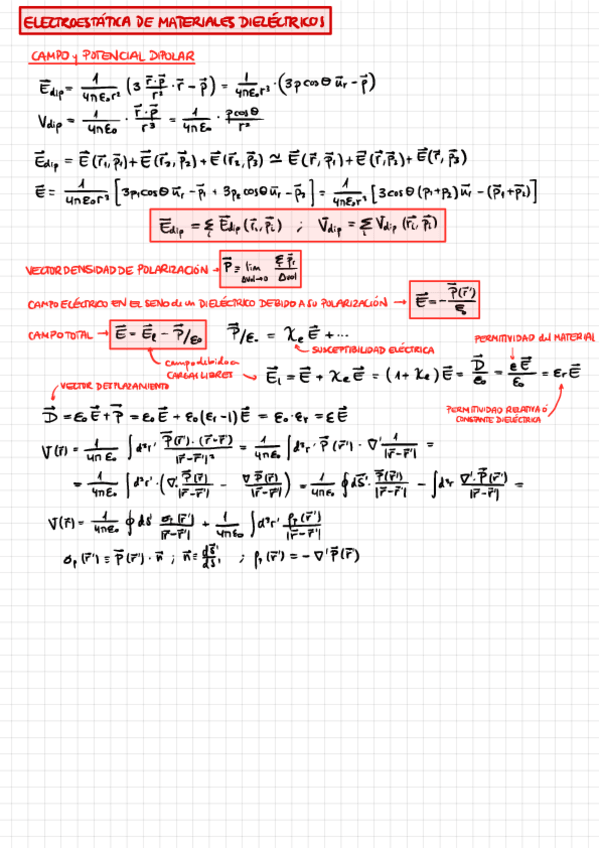 ELECTROESTÁTICA DE MATERIALES DIELÉCTRICOS
CAMPO y POTENCIAL DIPOLAR
E⃗dip = 1/4πε₀r² (3 r⃗·p⃗/r² · r⃗ − p⃗) = 1/4πε₀r³ · (3p cosθ u⃗r − p⃗)
Vdip = 1/4πε₀ · r⃗·p⃗/r³ = 1/4πε₀ · p cosθ/r²
E⃗dip = E⃗(r⃗₁,p⃗₁) + E⃗(r⃗₂,p⃗₂) + E⃗(r⃗₂,p⃗₂) ≃ E⃗(r⃗,p⃗₁) + E⃗(r⃗,p⃗₂) + E⃗(r⃗,p⃗₃)
E⃗ = 1/4πε₀r³ [3p₁cosθ u⃗r − p⃗₁ + 3p₂cosθ u⃗r − p⃗₂] = 1/4πε₀r³ [3cosθ (p₁+p₂) u⃗r − (p⃗₁+p⃗₂)]
E⃗dip = Σ E⃗dip (r⃗i, p⃗i) ; V⃗dip = Σ V⃗dip (r⃗i, p⃗i)
VECTOR DENSIDAD DE POLARIZACIÓN → P⃗ = lim Δvol→0 Σ p⃗i/Δvol
CAMPO ELÉCTRICO EN EL SENO de un DIELÉCTRICO DEBIDO A SU POLARIZACIÓN → E⃗ = − P⃗(r⃗)/ε₀
CAMPO TOTAL → E⃗ = E⃗ℓ − P⃗/ε₀ P⃗/ε₀ = χe E⃗ + ···
PERMITIVIDAD del MATERIAL
SUSCEPTIBILIDAD ELÉCTRICA
campo debido a CARGAS LIBRES
E⃗₁ = E⃗ + χe E⃗ = (1 + χe) E⃗ = D⃗/ε₀ = εE⃗/ε₀ = εr E⃗
VECTOR DESPLAZAMIENTO
PERMITIVIDAD RELATIVA ó CONSTANTE DIELÉCTRICA
D⃗ = ε₀E⃗ + P⃗ = ε₀E⃗ + ε₀(εr − 1)E⃗ = ε₀·εr = εE⃗
V(r⃗) = 1/4πε₀ ∫ d³r' P⃗(r⃗')·(r⃗−r⃗')/|r⃗−r⃗'|² = 1/4πε₀ ∫ d³r' P⃗(r⃗') · ∇' 1/|r⃗−r⃗'| =
= 1/4πε₀ ∫ d³r' · (∇· P⃗(r⃗')/|r⃗−r⃗'| − ∇ P⃗(r⃗')/|r⃗−r⃗'|) = 1/4πε₀ ∮ dS⃗' · P⃗(r⃗')/|r⃗−r⃗'| − ∫ d³r ∇'·P⃗(r⃗')/|r⃗−r⃗'| =
V(r⃗) = 1/4πε₀ ∮ dS' σp(r⃗')/|r⃗−r⃗'| + 1/4πε₀ ∫ d³r' ρp(r⃗')/|r⃗−r⃗'|
σp(r⃗') ≡ P⃗(r⃗')·n⃗ ; n⃗ ≡ dS⃗'/dS' ; ρp(r⃗') = −∇' P⃗(r⃗)